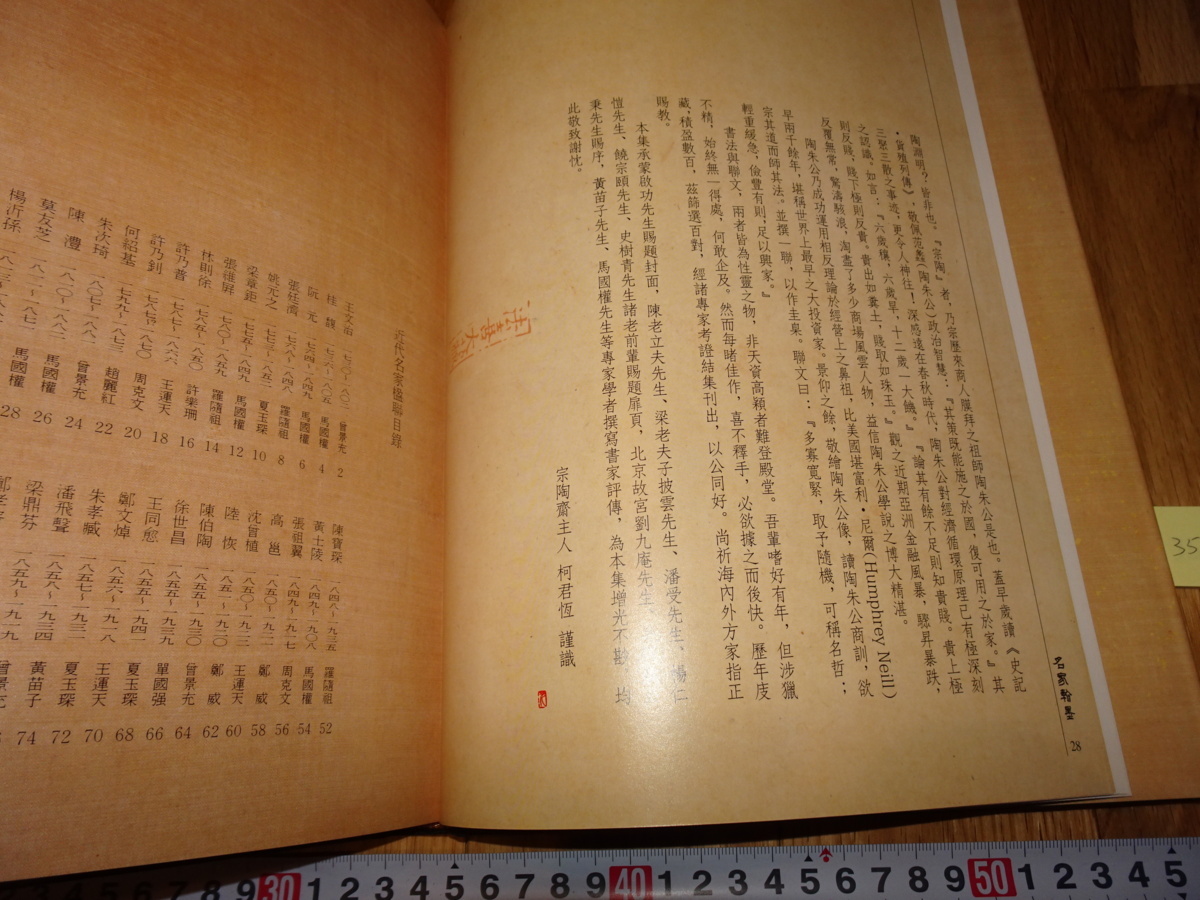 陶淵明？皆非也。『宗陶』者，乃宗歷來商人膜拜之祖師陶朱公是也。蓋早歲讀《史記
•貨殖列傳》，敬佩范蠡（陶朱公）政治智慧：『其策既能施之於國，復可用之於家。』其
三聚三散之事迹，更令人神往！深感遠在春秋時代，陶朱公對經濟循環原理已有極深刻
之認識。如言：『六歲穰，六歲旱，十二歲一大饑。』『論其有餘不足則知貴賤。貴上極
則反賤，賤下極則反貴。貴出如糞土，賤取如珠玉。』觀之近期亞洲金融風暴，驟昇暴跌，
反覆無常，驚濤駭浪，淘盡了多少商場風雲人物，益信陶朱公學說之博大精湛。
陶朱公乃成功運用相反理論於經營上之鼻祖，比美國堪富利•尼爾（Humphrey Neill）
早兩千餘年，堪稱世界上最早之大投資家。景仰之餘，敬繪陶朱公像，讀陶朱公商訓，欲
宗其道而師其法。並撰一聯，以作圭臬。聯文曰：『多寡寬緊，取予隨機，可稱名哲；
輕重緩急，儉豐有則，足以興家。』
書法與聯文，兩者皆為性靈之物，非天資高穎者難登殿堂。吾輩嗜好有年，但涉獵
不精，始終無一得處，何敢企及。然而每睹佳作，喜不釋手，必欲據之而後快。歷年庋
藏，積盈數百，茲篩選百對，經諸專家考證結集刊出，以公同好。尚祈海內外方家指正
賜教。
本集承蒙啟功先生賜題封面，陳老立夫先生、梁老夫子披雲先生、潘受先生、楊仁
愷先生、饒宗頤先生、史樹青先生諸老前輩賜題扉頁，北京故宮劉九庵先生
秉先生賜序，黃苗子先生、馬國權先生等專家學者撰寫書家評傳，為本集增光不尠，均
此敬致謝忱。
宗陶齋主人 柯君恆 謹識
名家翰墨
28
35
近代名家楹聯目錄
王文治 一七三〇～一八〇二 曾景充 2
桂馥 馬國權 4
阮元 一七六四～一八四九 馬國權 6
張廷濟 一七六八～一八四八 羅隨祖 8
姚元之 一七七三～一八五二 夏玉琛 10
梁章鉅 一七七五～一八四九 馬國權 12
張維屏 一七八〇～一八五九 羅隨祖 14
林則徐 一七八五～一八五〇 許樂珊 16
許乃普 一七八七～一八六六 王運天 18
許乃釗 周克文 20
何紹基 一七九九～一八七三 趙麗紅 22
朱次琦 一八〇七～一八八一 曾景充 24
陳澧 一八一〇～一八八二 馬國權 26
莫友芝 一八一一～一八七一 馬國權 28
楊沂孫
陳寶琛 一八四八～一九三五 羅隨祖 52
黃士陵 一八四九～一九〇八 馬國權 54
張祖翼 一八四九～一九一七 周克文 56
高邕 一八五〇～一九二一 鄭威 58
沈曾植 一八五〇～一九二二 王運天 60
陸恢 一八五一～一九二〇 鄭威 62
陳伯陶 一八五五～一九三〇 曾景充 64
徐世昌 一八五五～一九三九 單國強 66
王同愈 一八五五～一九四一 夏玉琛 68
鄭文焯 一八五六～一九一八 王運天 70
朱孝臧 一八五七～一九三一 夏玉琛 72
潘飛聲 一八五八～一九三四 黃苗子 74
梁鼎芬 一八五九～一九一九 曾景充
30 1 2 3 4 5 6 7 8 9 40 1 2 3 4 5 6 7 8 9 50 1 2 3 4 5